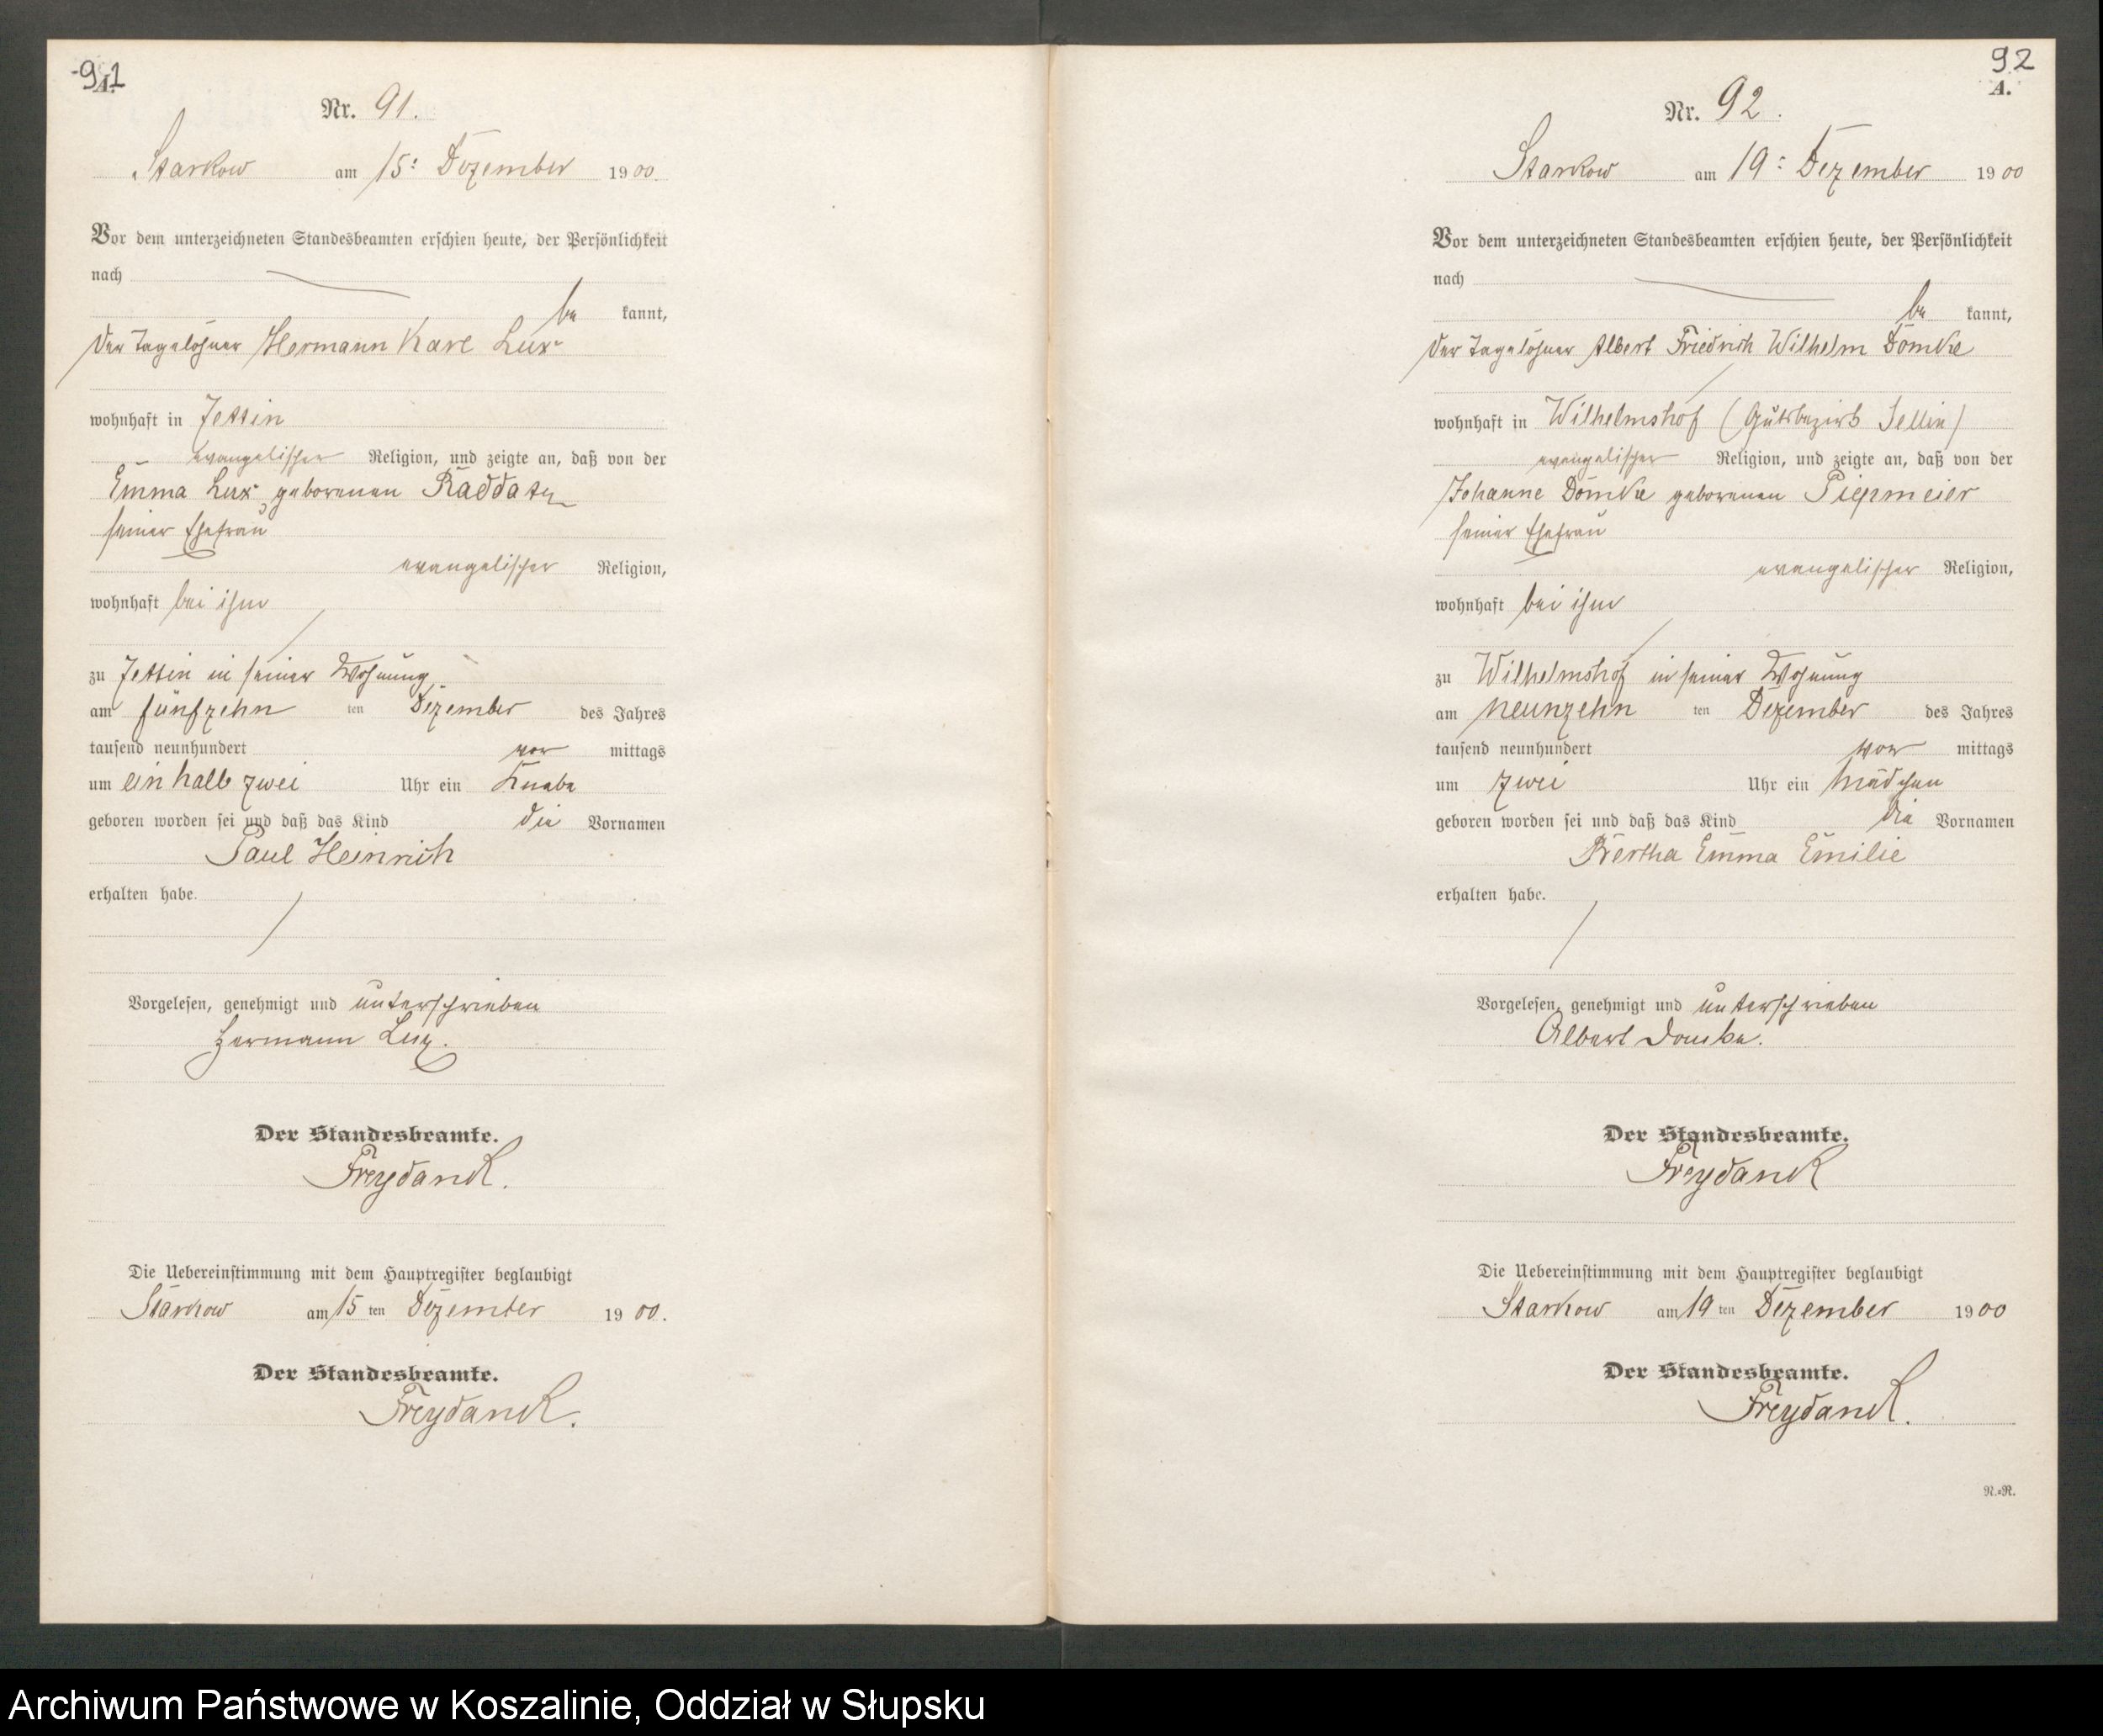 91
A.
Nr. 91.
Starkow am 15: Dezember 1900.
Vor dem unterzeichneten Standesbeamten erschien heute, der Persönlichkeit
nach
be kannt,
der Tagelöhner Hermann Karl Lux
wohnhaft in Jettin
evangelischer Religion, und zeigte an, daß von der
Emma Lux geborenen Raddatz
seiner Ehefrau
evangelischer Religion,
wohnhaft bei ihm
zu Jettin in seiner Wohnung
am fünfzehn ten Dezember des Jahres
tausend neunhundert vor mittags
um ein halb zwei Uhr ein Knabe
geboren worden sei und daß das Kind die Vornamen
Paul Heinrich
erhalten habe.
Vorgelesen, genehmigt und unterschrieben
Hermann Lux.
Der Standesbeamte.
Freydanck.
Die Uebereinstimmung mit dem Hauptregister beglaubigt
Starkow am 15 ten Dezember 1900.
Der Standesbeamte.
Freydanck.
92
A.
Nr. 92.
Starkow am 19: Dezember 1900
Vor dem unterzeichneten Standesbeamten erschien heute, der Persönlichkeit
nach
be kannt,
der Tagelöhner Albert Friedrich Wilhelm Domke
wohnhaft in Wilhelmshof (Gutsbezirk Sellin)
evangelischer Religion, und zeigte an, daß von der
Johanne Domke geborenen Piepmeier
seiner Ehefrau
evangelischer Religion,
wohnhaft bei ihm
zu Wilhelmshof in seiner Wohnung
am neunzehn ten Dezember des Jahres
tausend neunhundert vor mittags
um zwei Uhr ein Mädchen
geboren worden sei und daß das Kind die Vornamen
Bertha Emma Emilie
erhalten habe.
Vorgelesen, genehmigt und unterschrieben
Albert Domke.
Der Standesbeamte.
Freydanck
Die Uebereinstimmung mit dem Hauptregister beglaubigt
Starkow am 19 ten Dezember 1900
Der Standesbeamte.
Freydanck.
N.=R.
Archiwum Państwowe w Koszalinie, Oddział w Słupsku